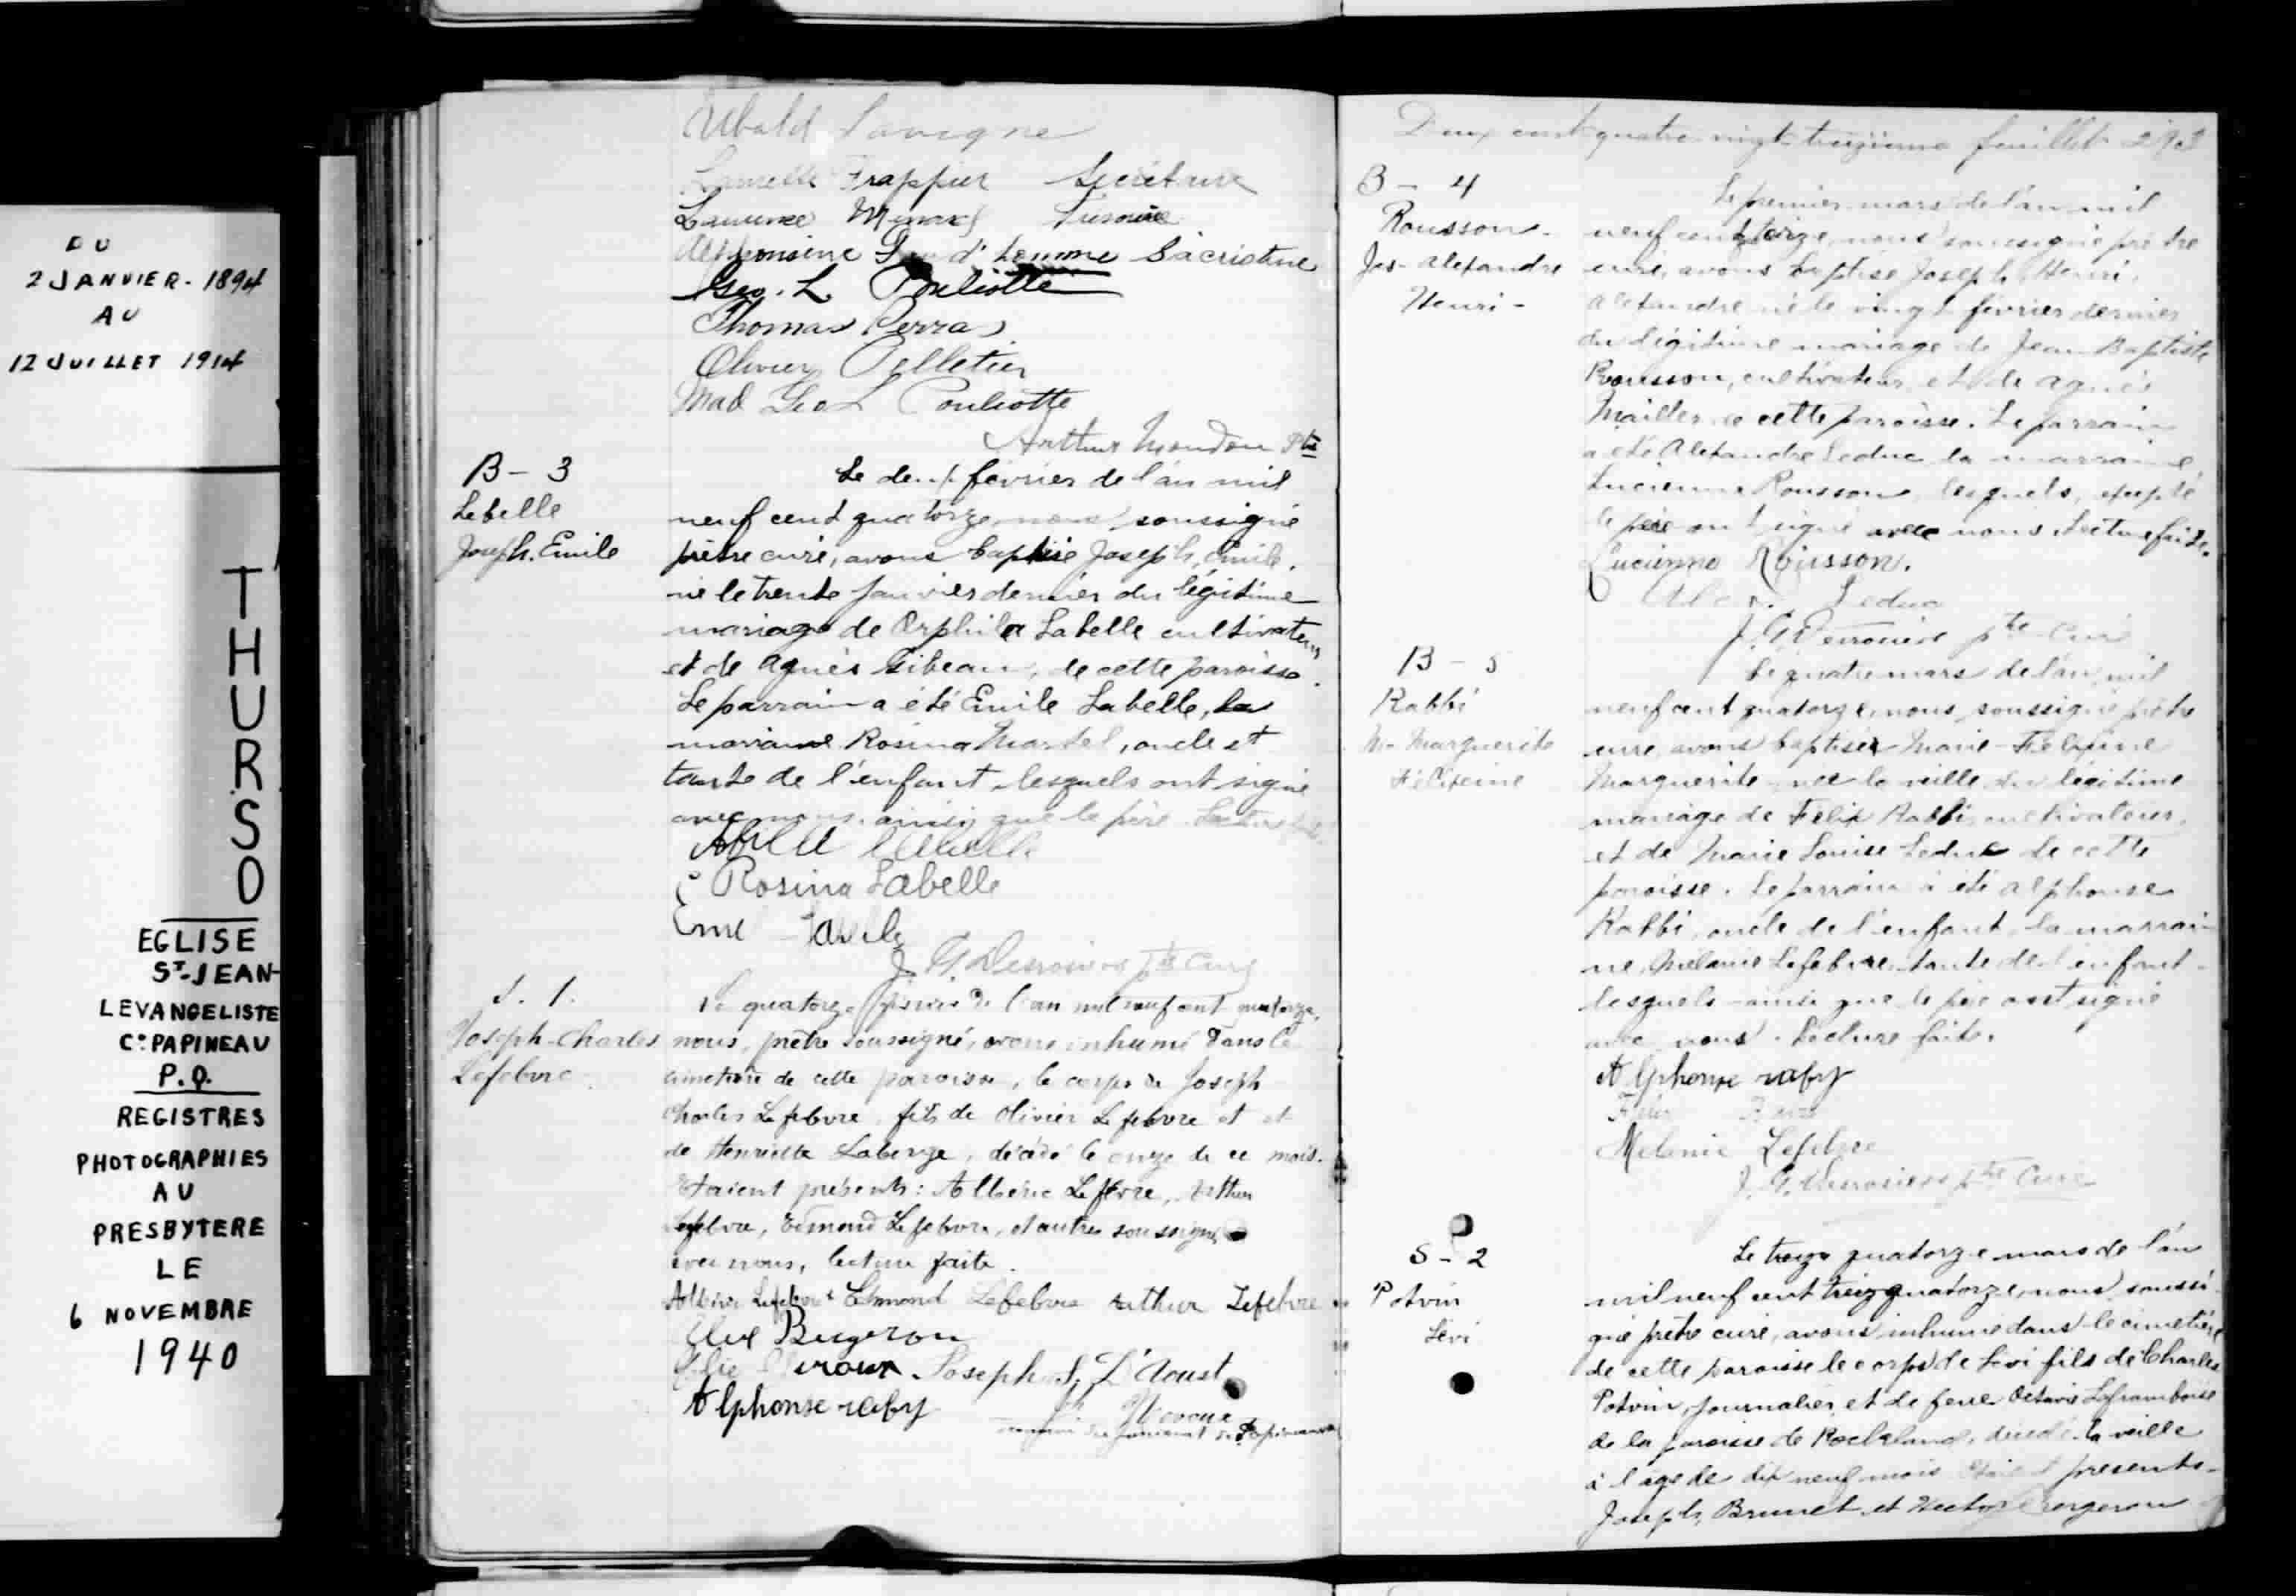 DU
2 JANVIER - 1894
AU
12 JUILLET 1914
THURSO
EGLISE
ST-JEAN-
LEVANGELISTE
Co PAPINEAU
P.Q.
REGISTRES
PHOTOGRAPHIES
AU
PRESBYTERE
LE
6 NOVEMBRE
1940
Ubald Lavigne
Frappier Secrétaire
Laurence Menard
Alphonsine Sacristine
Geo. L Pouliotte
Thomas Perras
Olivier Pelletier
Mad Geo L Pouliotte
Arthur Ptre
B - 3
Lebelle
Joseph. Emile
Le deux février de l'an mil
neuf cent quatorze, nous soussigné
prêtre curé, avons baptisé Joseph, Emile.
né le trente janvier dernier du légitime
mariage de Orphila Labelle cultivateur
et de Agnès Gibeau, de cette paroisse.
Le parrain a été Emile Labelle, la
marraine Rosina Martel, oncle et
tante de l'enfant, lesquels ont signé
avec nous, ainsi que le père. Lecture faite.
Rosina Labelle
J. G. Derrosiers ptre Curé
S. 1.
Joseph-Charles
Lefebvre
Le quatorze février de l'an mil neuf cent quatorze,
nous, prêtre soussigné, avons inhumé dans le
cimetière de cette paroisse, le corps de Joseph
Charles Lefebvre, fils de Olivier Lefebvre et et
de Henriette Laberge, décédé le onze de ce mois.
Etaient présents: Alberic Lefebvre, Arthur
Lefebvre, Edmond Lefebvre, et autres soussignés
avec nous, lecture faite.
Lefebvre Edmond Lefebvre Arthur Lefebvre
Bergeron
Joseph D'Aoust
Alphonse raby
Deux cent quatre vingt treizième feuillet 293
B - 4
Rousson.
Jos - Alexandre
Henri -
Le premier mars de l'an mil
neuf cent quatorze, nous soussigné prêtre
curé, avons baptisé Joseph, Henri,
Alexandre né le vingt février dernier
du légitime mariage de Jean Baptiste
Rousson, cultivateur, et de Agnès
Mailler de cette paroisse. Le parrain
a été Alexandre Leduc la marraine
Lucienne Rousson, lesquels, excepté
le père ont signé avec nous. Lecture faite.
Lucienne Rousson.
Alex. Leduc
J. G. Derrosiers ptre Curé
B - 5
Rabbi
M - Marguerite
Félixine
Le quatre mars de l'an mil
neuf cent quatorze, nous, soussigné prêtre
curé, avons baptisée Marie - Félixine
Marguerite née la veille du légitime
mariage de Félix Rabbi, cultivateur,
et de Marie Louise Leduc de cette
paroisse. Le parrain a été Alphonse
Rabbi, oncle de l'enfant, la marrai-
ne, Mélanie Lefebvre, tante de l'enfant -
lesquels ainsi que le père ont signé
avec nous. Lecture faite.
Alphonse raby
Melanie Lefebvre
J. G. Derrosiers ptre Curé
S - 2
Potvin
Lévi
Le treize quatorze mars de l'an
mil neuf cent treize quatorze, nous, soussi-
gné prêtre curé, avons inhumé dans le cimetière
de cette paroisse le corps de Lévi fils de Charles
Potvin, journalier, et de feue Octavie Laframboise
de la paroisse de Rockland, décédé la veille
à l'âge de dix neuf mois. Etaient présents -
Joseph Brunet et Hector Bergeron